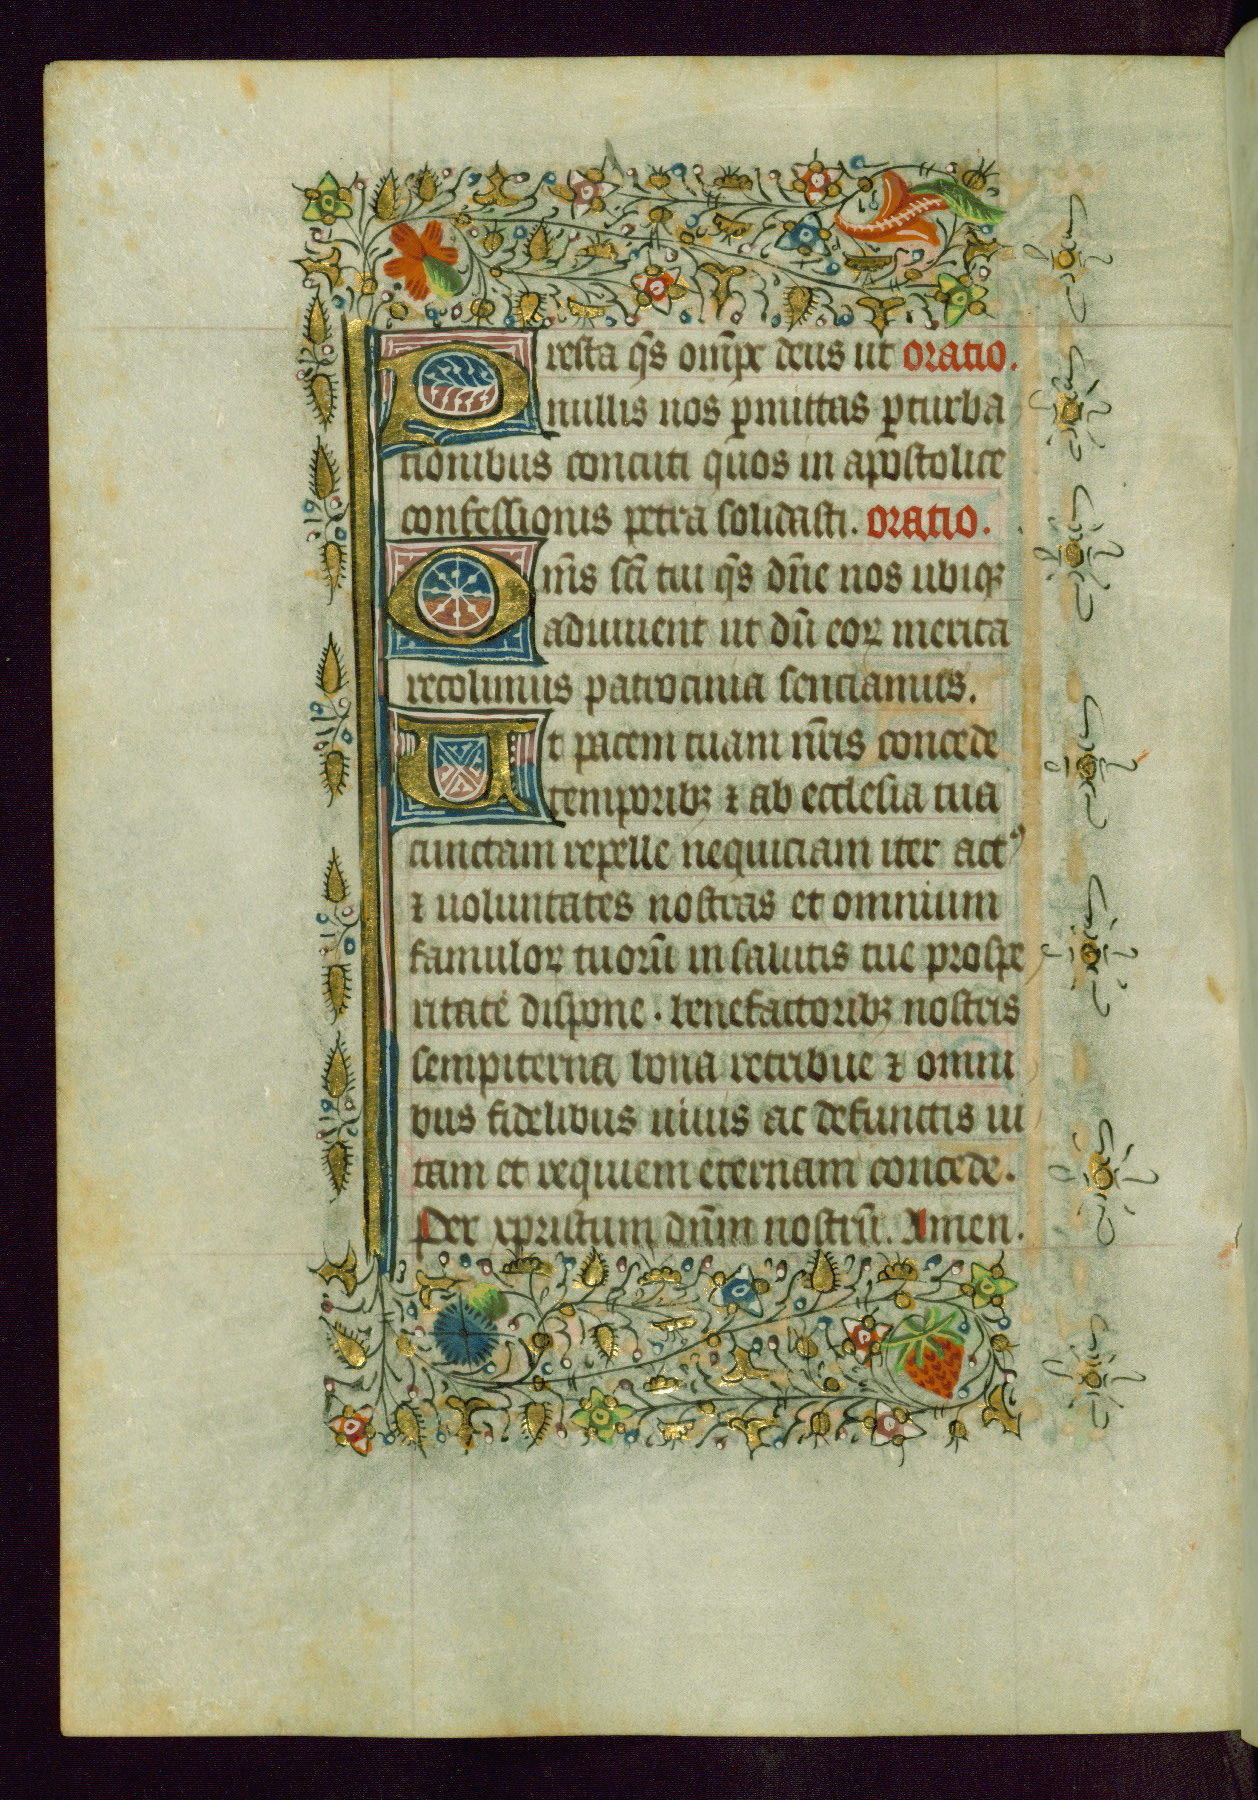 Presta q̄s om̄pe deus ut oratio.
nullis nos ꝑmittas ꝑturba
tionibus concuti quos in apostolice
confessionis petra solidasti. oratio.
Om̄s sc̄i tui q̄s dn̄e nos ubiqꝫ
adiuuent ut dū eoꝝ merita
recolimus patrocinia senciamus.
Et pacem tuam nr̄is concede
temporibꝫ ⁊ ab ecclesia tua
cunctam repelle nequiciam iter actꝰ
⁊ uoluntates nostras et omnium
famuloꝝ tuorū in salutis tue prospe
ritatē dispone · benefactoribꝫ nostris
sempiterna bona retribue ⁊ omni
bus fidelibus uiuis ac defunctis ui
tam et requiem eternam concede.
Per xpristum dn̄m nostrū. Amen.